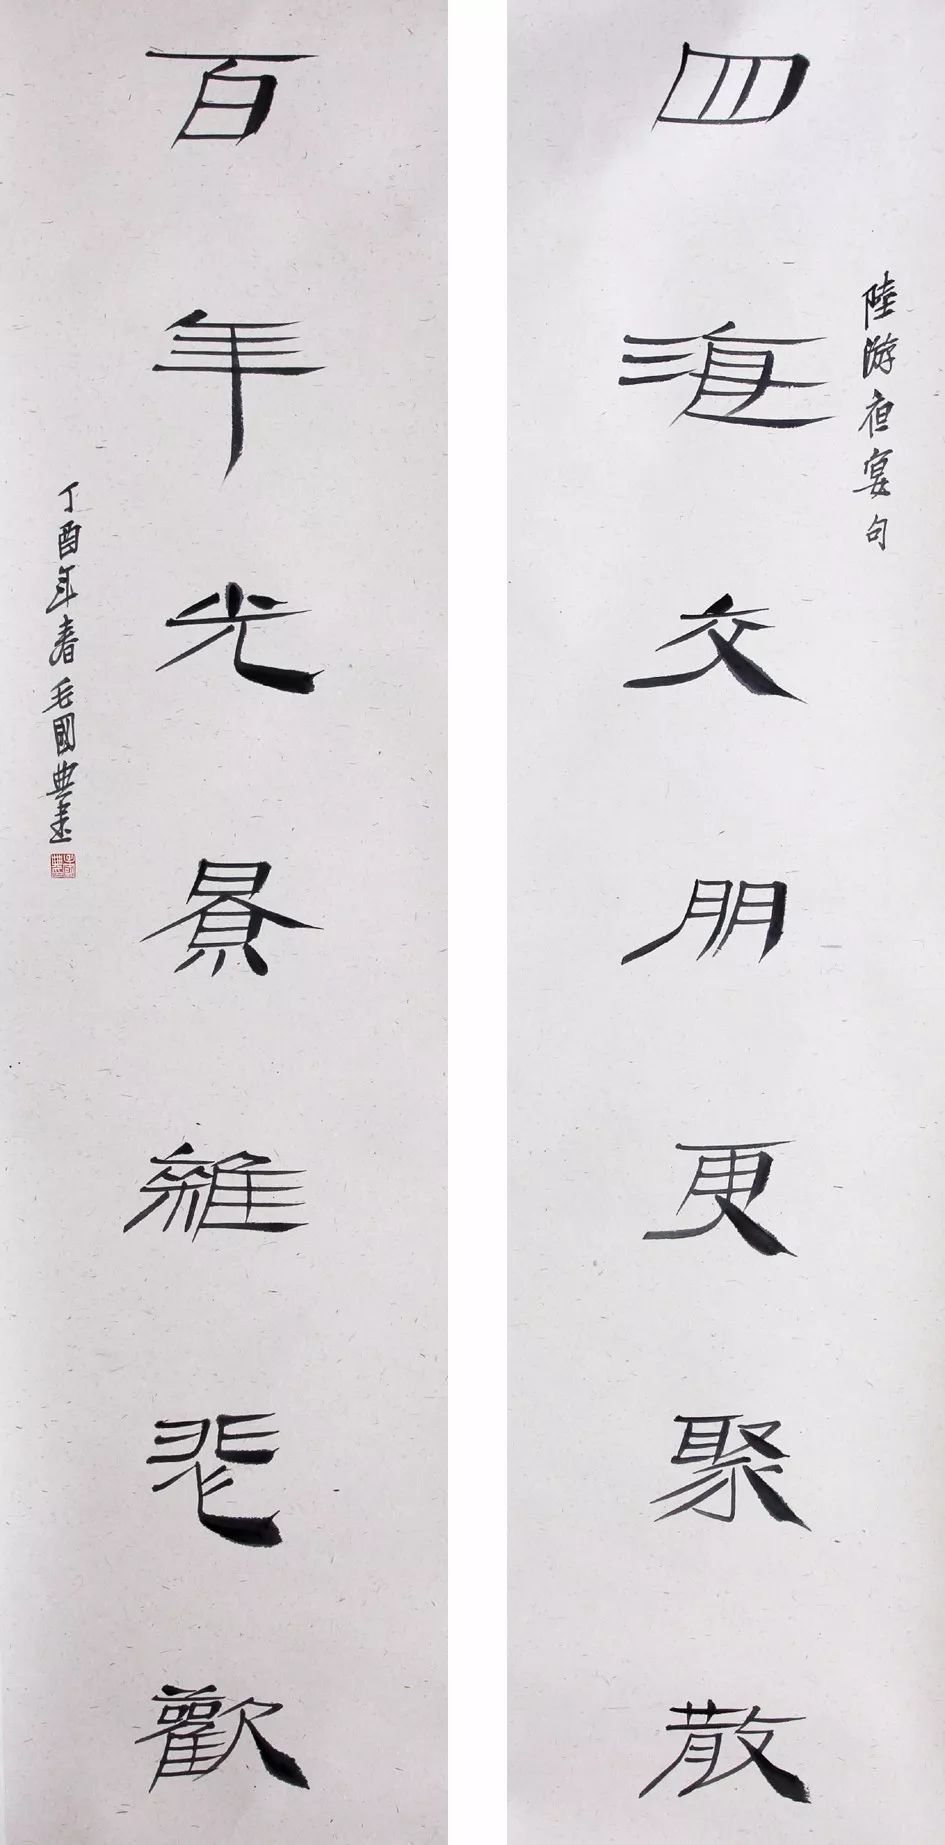 陸游夜宴句
四海交朋更聚散
百年光景雜悲歡
丁酉年春毛國典書